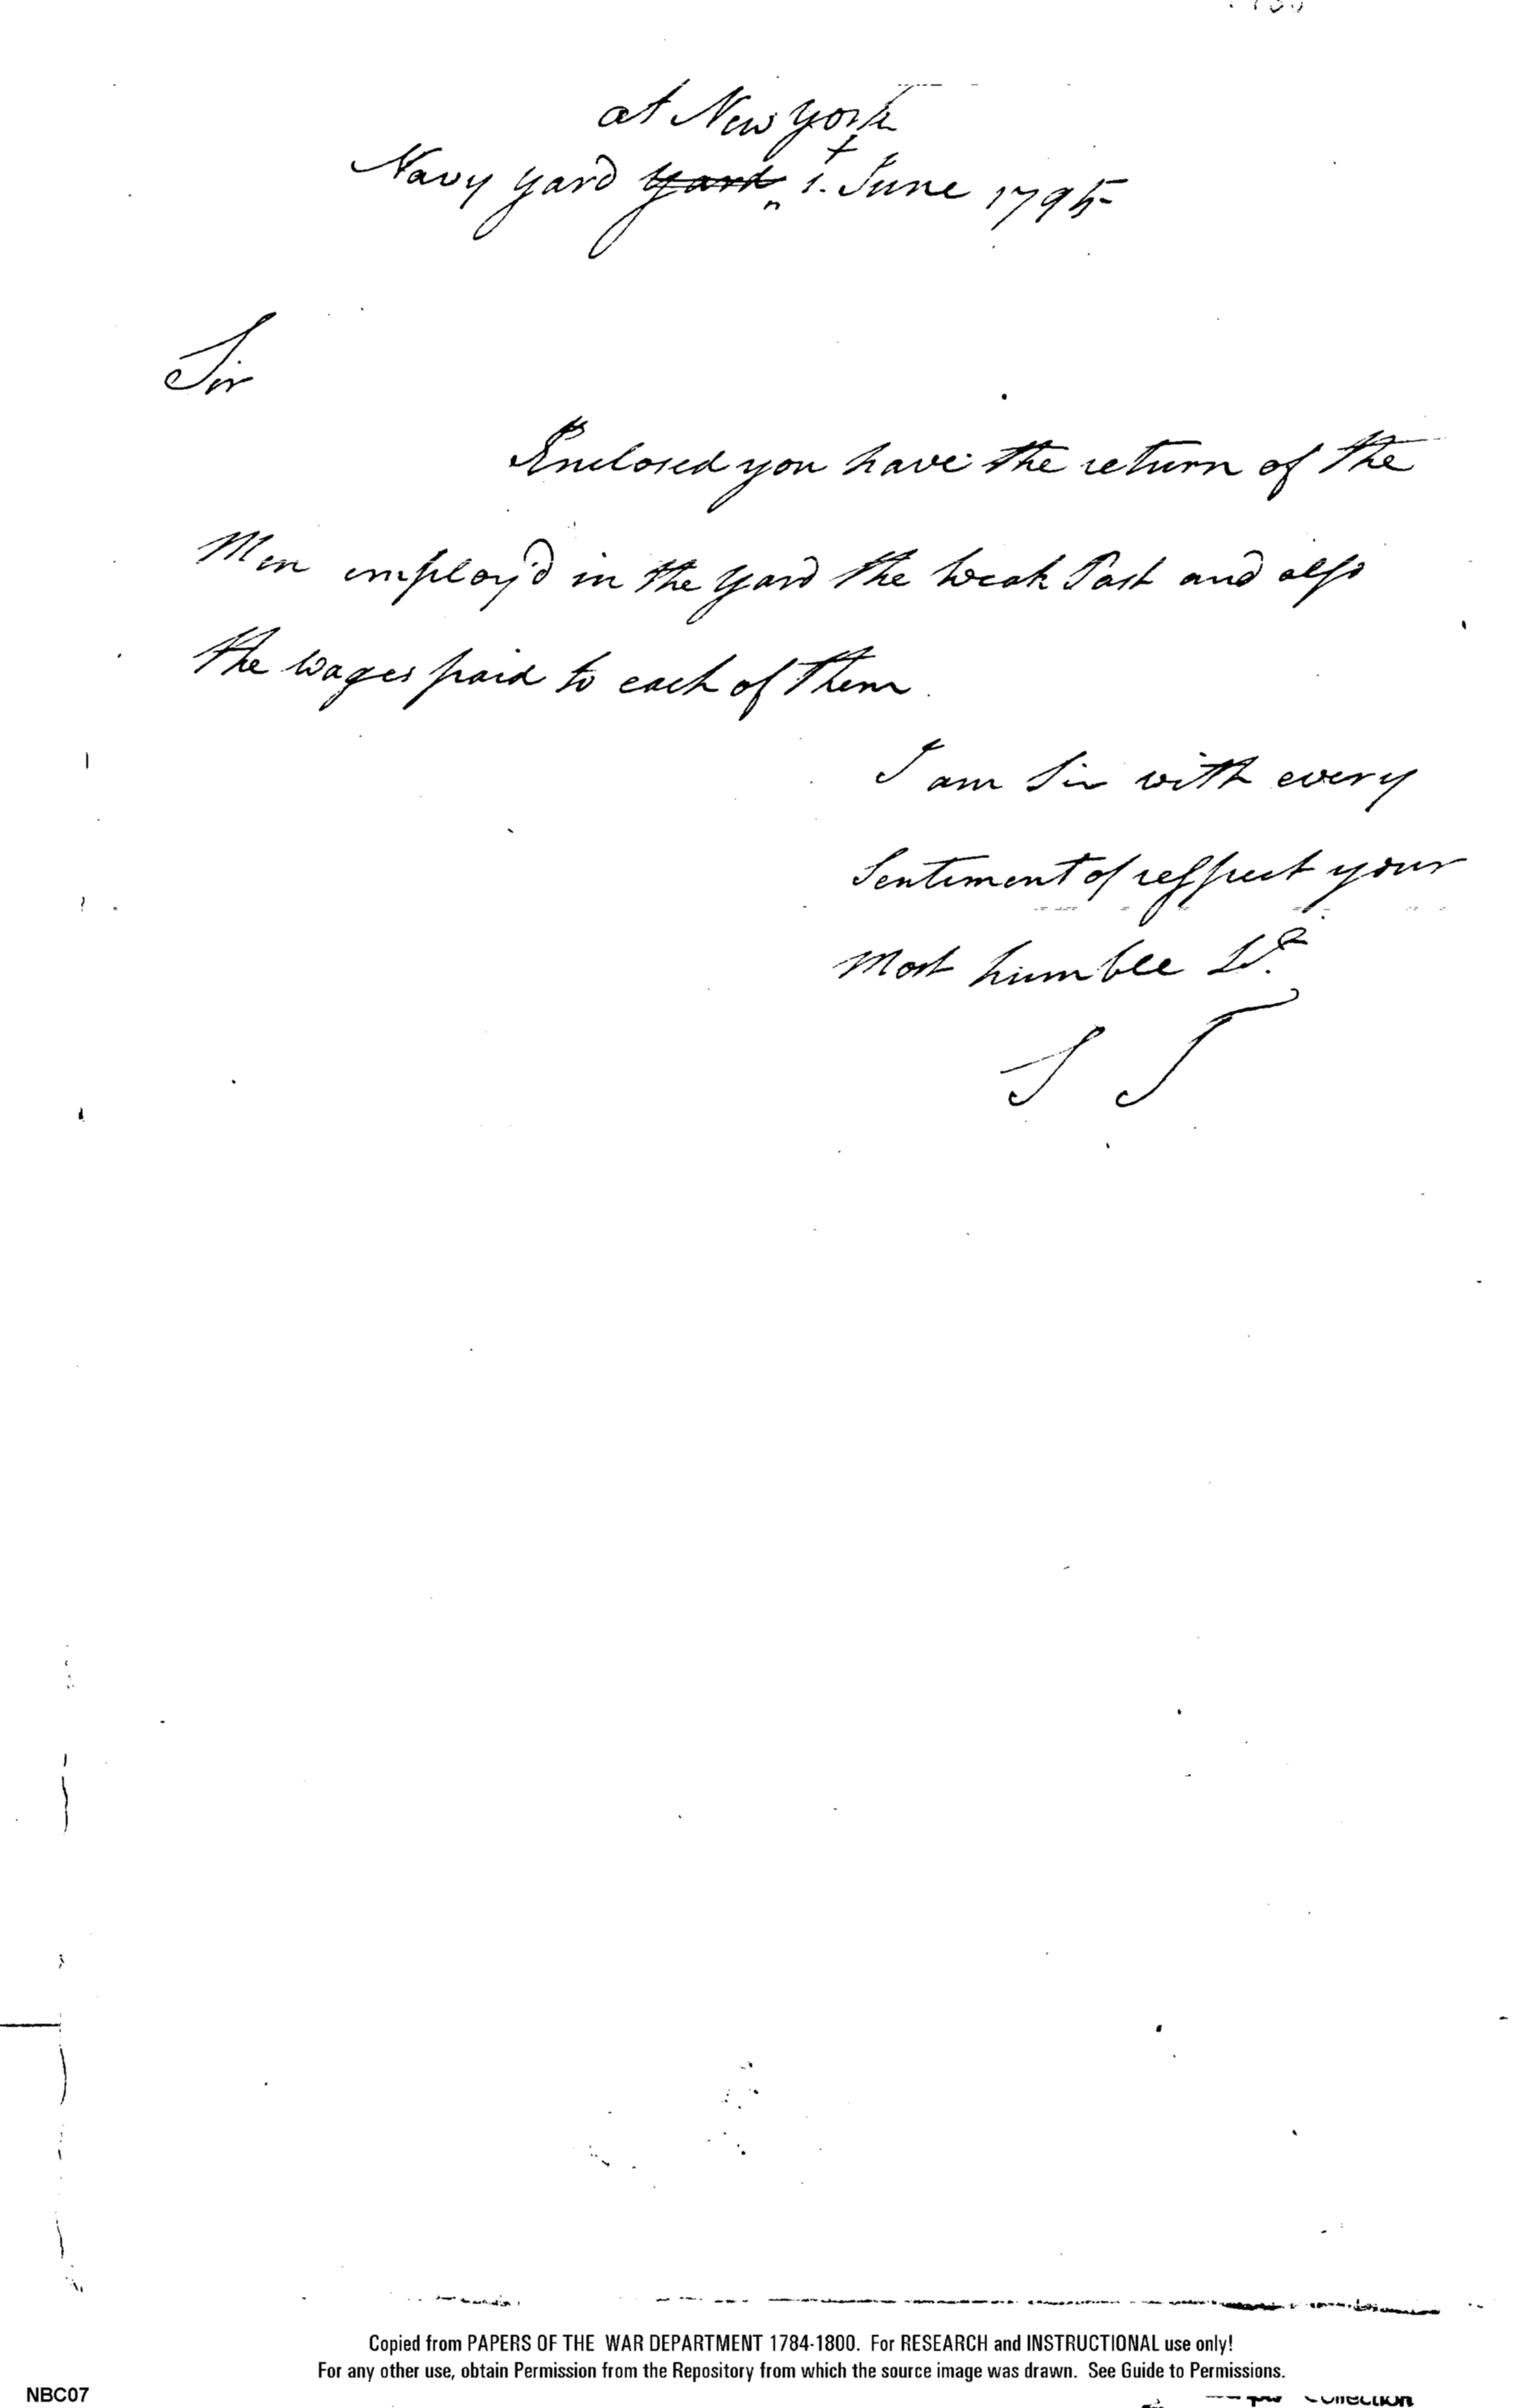 at New York
Navy yard yard 1st June 1795
Sir
Enclosed you have the return of the
Men employ'd in the yard the weak Past and also
the wages paid to each of them.
I am Sir with every
Sentiment of respect your
Most humble St.
S T
Copied from PAPERS OF THE WAR DEPARTMENT 1784-1800. For RESEARCH and INSTRUCTIONAL use only!
For any other use, obtain Permission from the Repository from which the source image was drawn. See Guide to Permissions.
NBC07
Collection